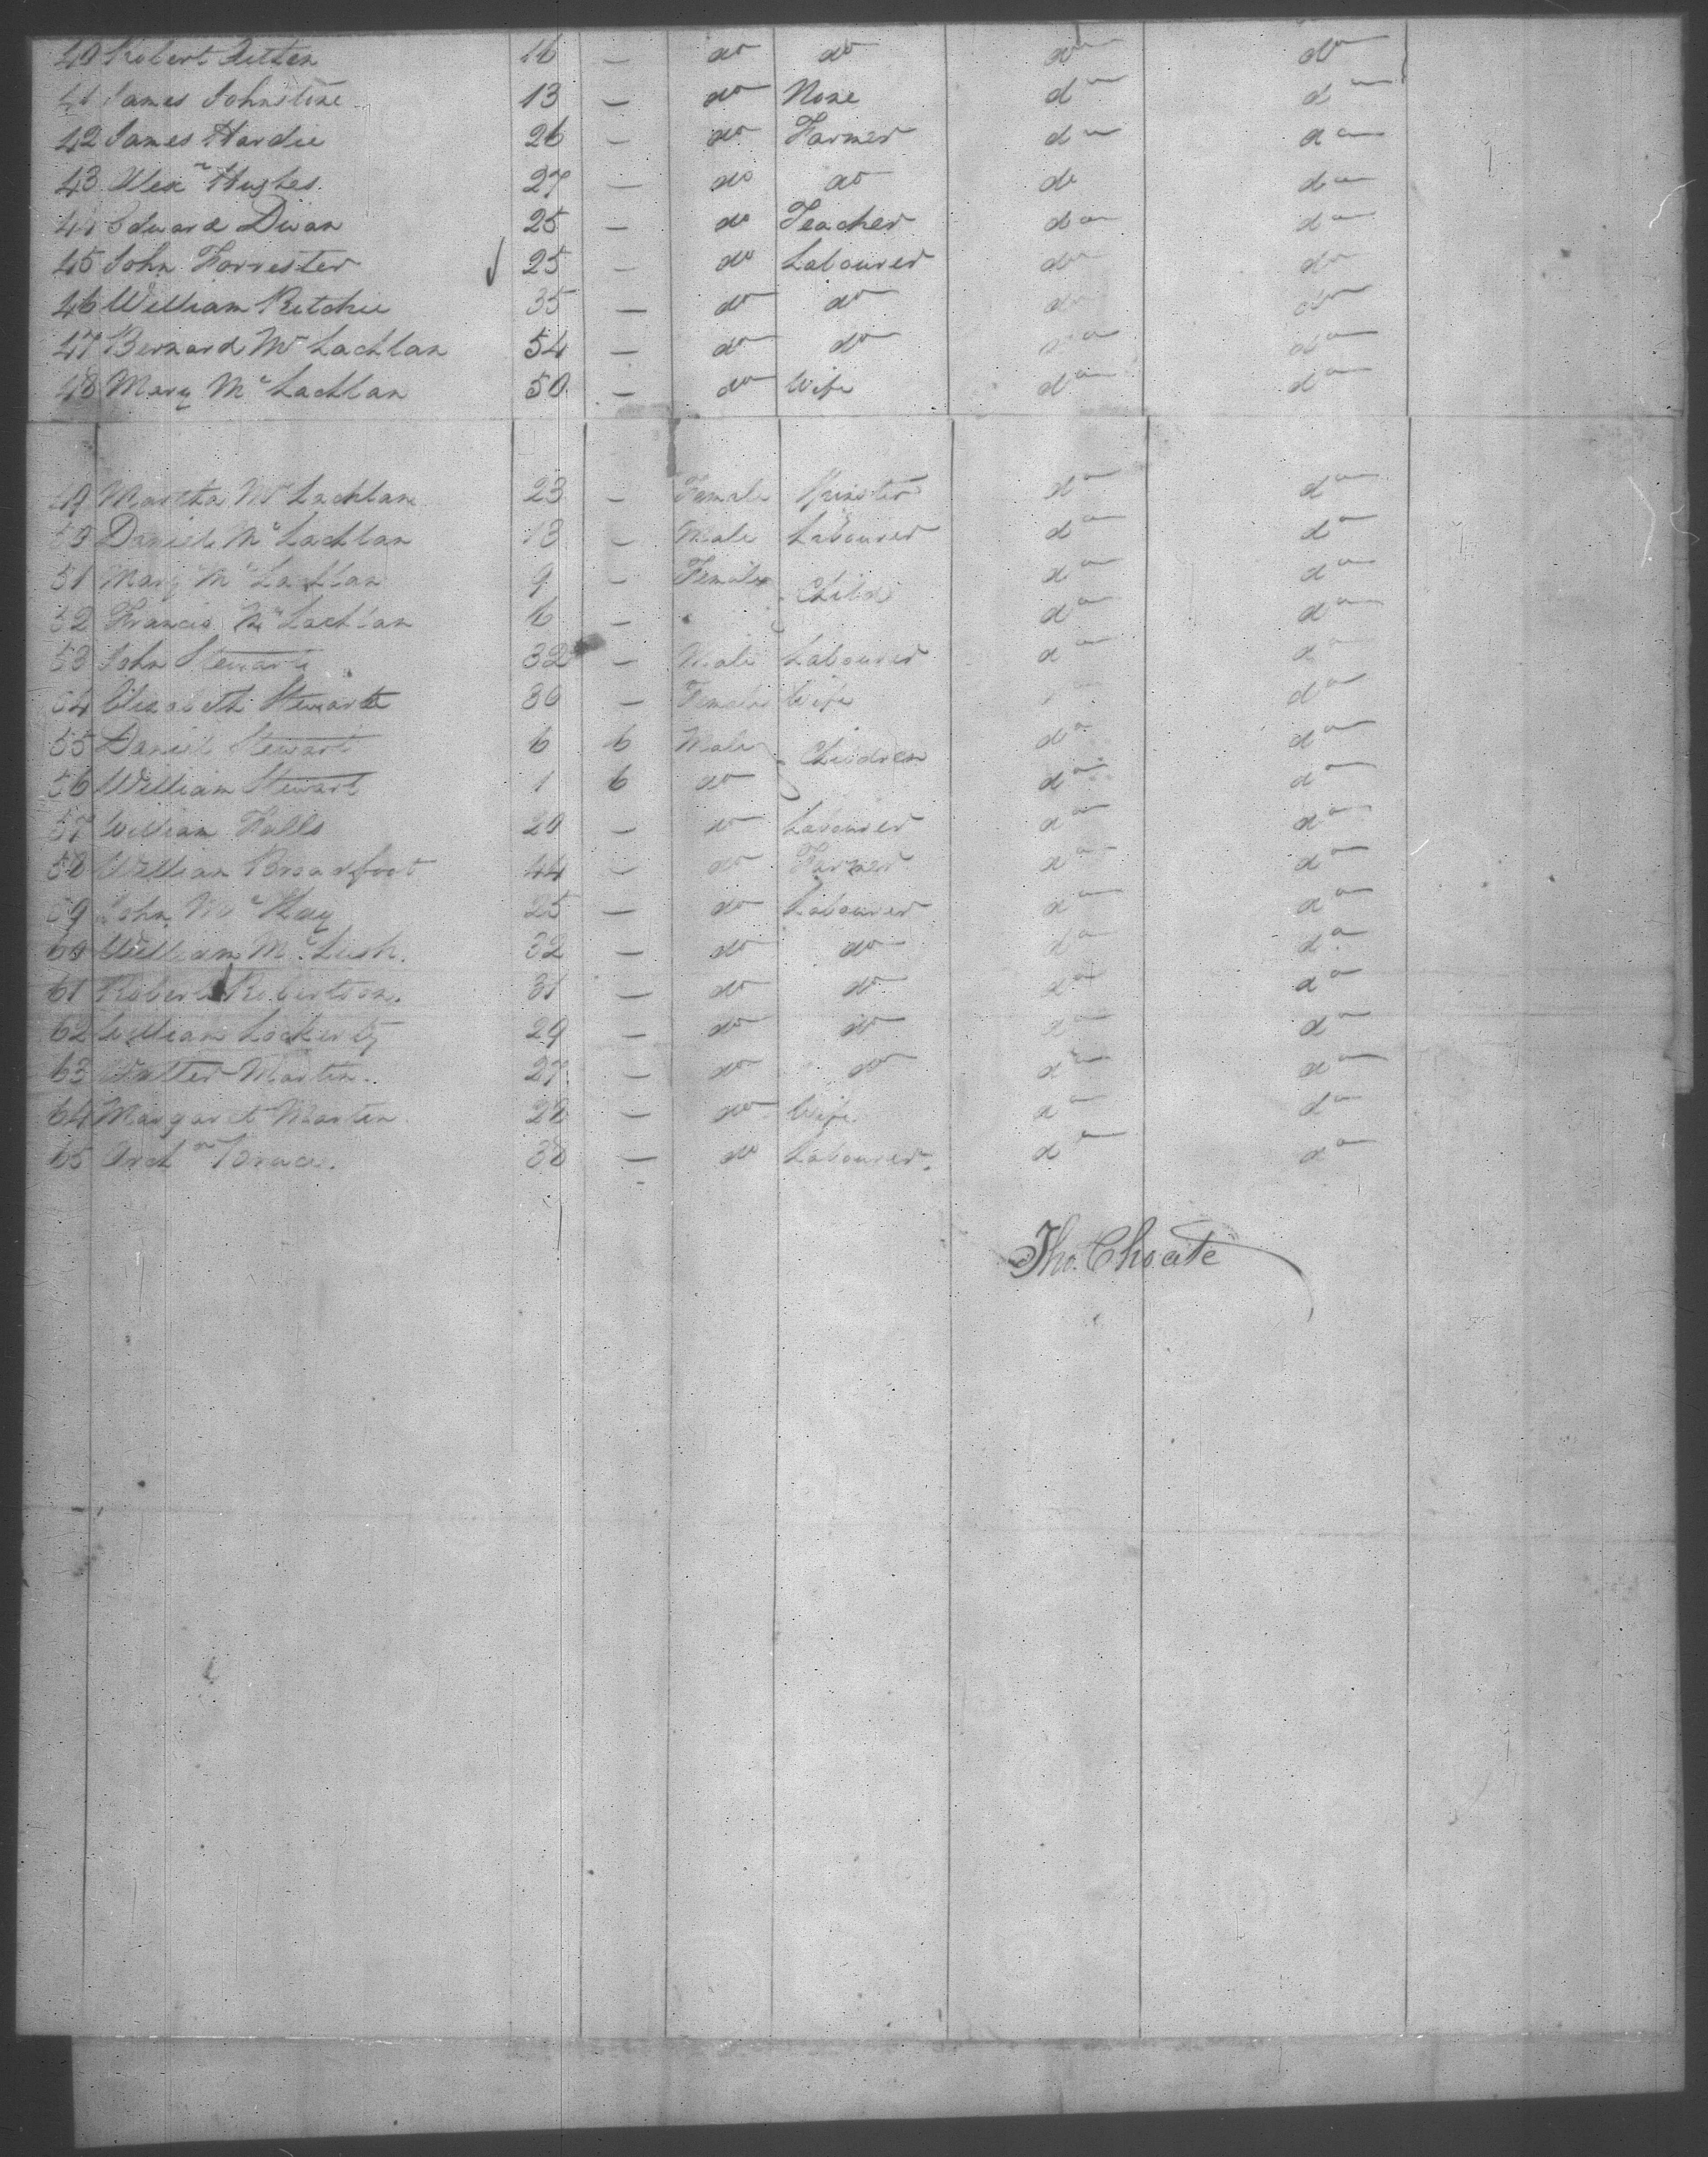 40 Robert Aitken 16 — do do do do
41 James Johnstone 13 — do None do do
42 James Hardie 26 — do Farmer do do
43 Alexr Hughes 27 — do do do do
44 Edward Divan 25 — do Teacher do do
45 John Forrester 25 — do Labourer do do
46 William Ritchie 35 — do do do do
47 Bernard Mc Lachlan 54 — do do do do
48 Mary Mc Lachlan 50 — do Wife do do
49 Martha Mc Lachlan 23 — Female Spinster do do
50 Daniel Mc Lachlan 13 — Male Labourer do do
51 Mary Mc Lachlan 9 — Female Child do do
52 Francis Mc Lachlan 6 — do do
53 John Stewart 32 — Male Labourer do do
54 Elizabeth Stewart 30 — Female Wife do
55 Daniel Stewart 6 6 Male Children do do
56 William Stewart 1 6 do do do
57 William Falls 20 — do Labourer do do
58 William Broadfoot 44 — do Farmer do do
59 John Mc Kay 25 — do Labourer do do
60 William Mc 32 — do do do do
61 Robert Robertson 31 — do do do do
62 William Lockerby 29 — do do do do
63 Walter Martin 27 — do do do do
64 Margaret Martin 28 — do Wife do do
65 Arch 38 — do Labourer do do
Tho. Choate